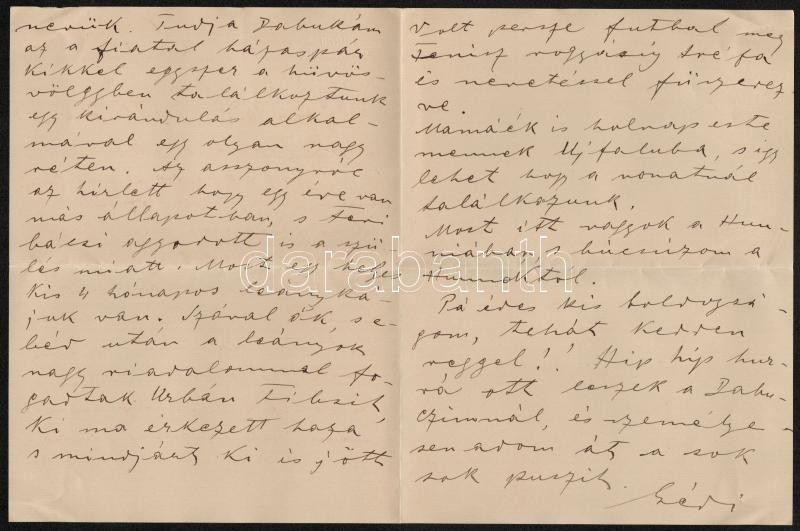 nevük. Tudja Dabukám
az a fiatal házaspár
kikkel egyszer a hüvös-
völgyben találkoztunk
egy kirándulás alkal-
mával egy olyan nagy
réten. Az asszonyról
az hirlett hogy egy éve van
más állapotban, s Feri
bácsi aggodott is a szü-
lés miatt. Most egy helyes
kis 4 hónapos leányká-
juk van. Szóval ők, s e-
béd után a leányok
nagy riadalommal fo-
gadtak Urbán Tibsit,
ki ma érkezett haza
s mindjárt ki is jött
Volt persze futbal meg
Tenisz roggásig tréfa
és nevetéssel füszerez-
ve.
Mamáék is holnap este
mennek Ujfaluba, s igy
lehet hogy a vonatnál
találkozunk.
Most itt vagyok a Hun-
niában, s búcsúzom a
Hunnoktól.
Pá édes kis boldogsá-
gom, tehát Kedden
reggel!! Hip hip hur-
rá ott leszek a Dabu-
czimnál, és személye-
sen adom át a sok
sok puszit.
Gédi
darabanth